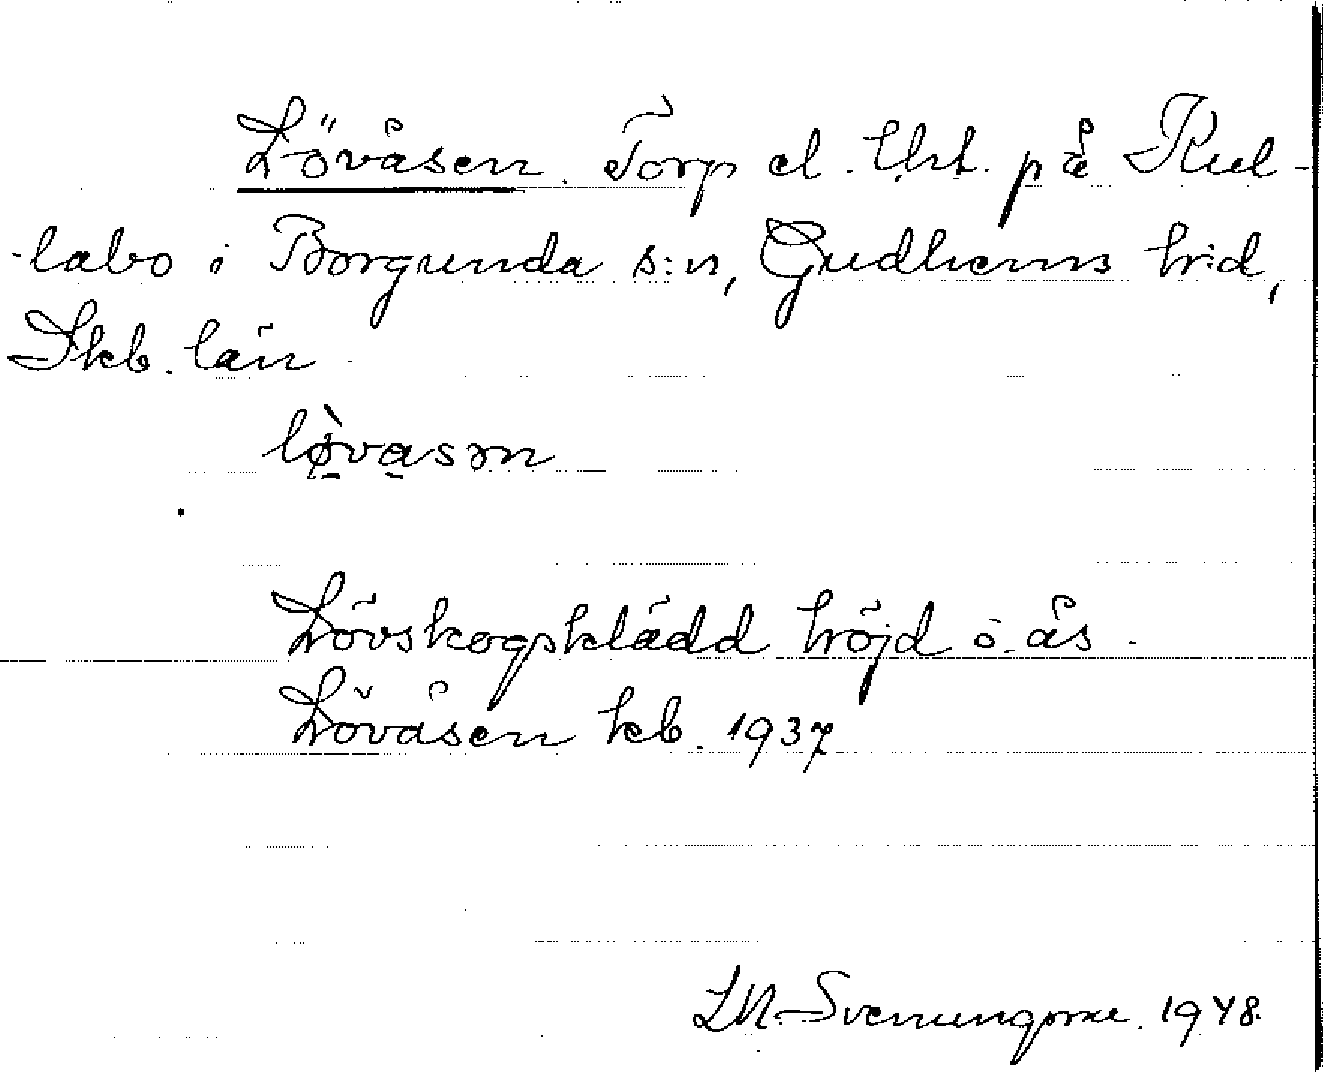 Lövåsen. Torp el. lht. på Rul-
labo i Borgunda s:n, Gudhems hd,
Skb. län
lø̀vasən
Lövskogsklädd höjd o. ås.
Lövåsen kb. 1937
Svenungsson. 1948.